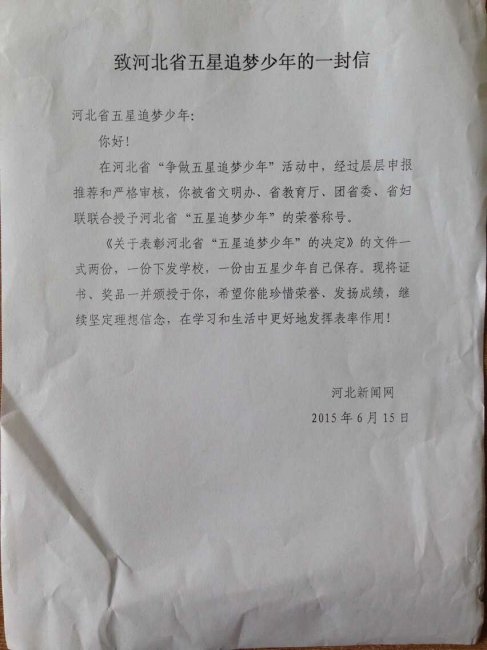 致河北省五星追梦少年的一封信
河北省五星追梦少年：
你好！
在河北省“争做五星追梦少年”活动中，经过层层申报
推荐和严格审核，你被省文明办、省教育厅、团省委、省妇
联联合授予河北省“五星追梦少年”的荣誉称号。
《关于表彰河北省“五星追梦少年”的决定》的文件一
式两份，一份下发学校，一份由五星少年自己保存。现将证
书、奖品一并颁授于你，希望你能珍惜荣誉、发扬成绩，继
续坚定理想信念，在学习和生活中更好地发挥表率作用！
河北新闻网
2015 年 6 月 15 日